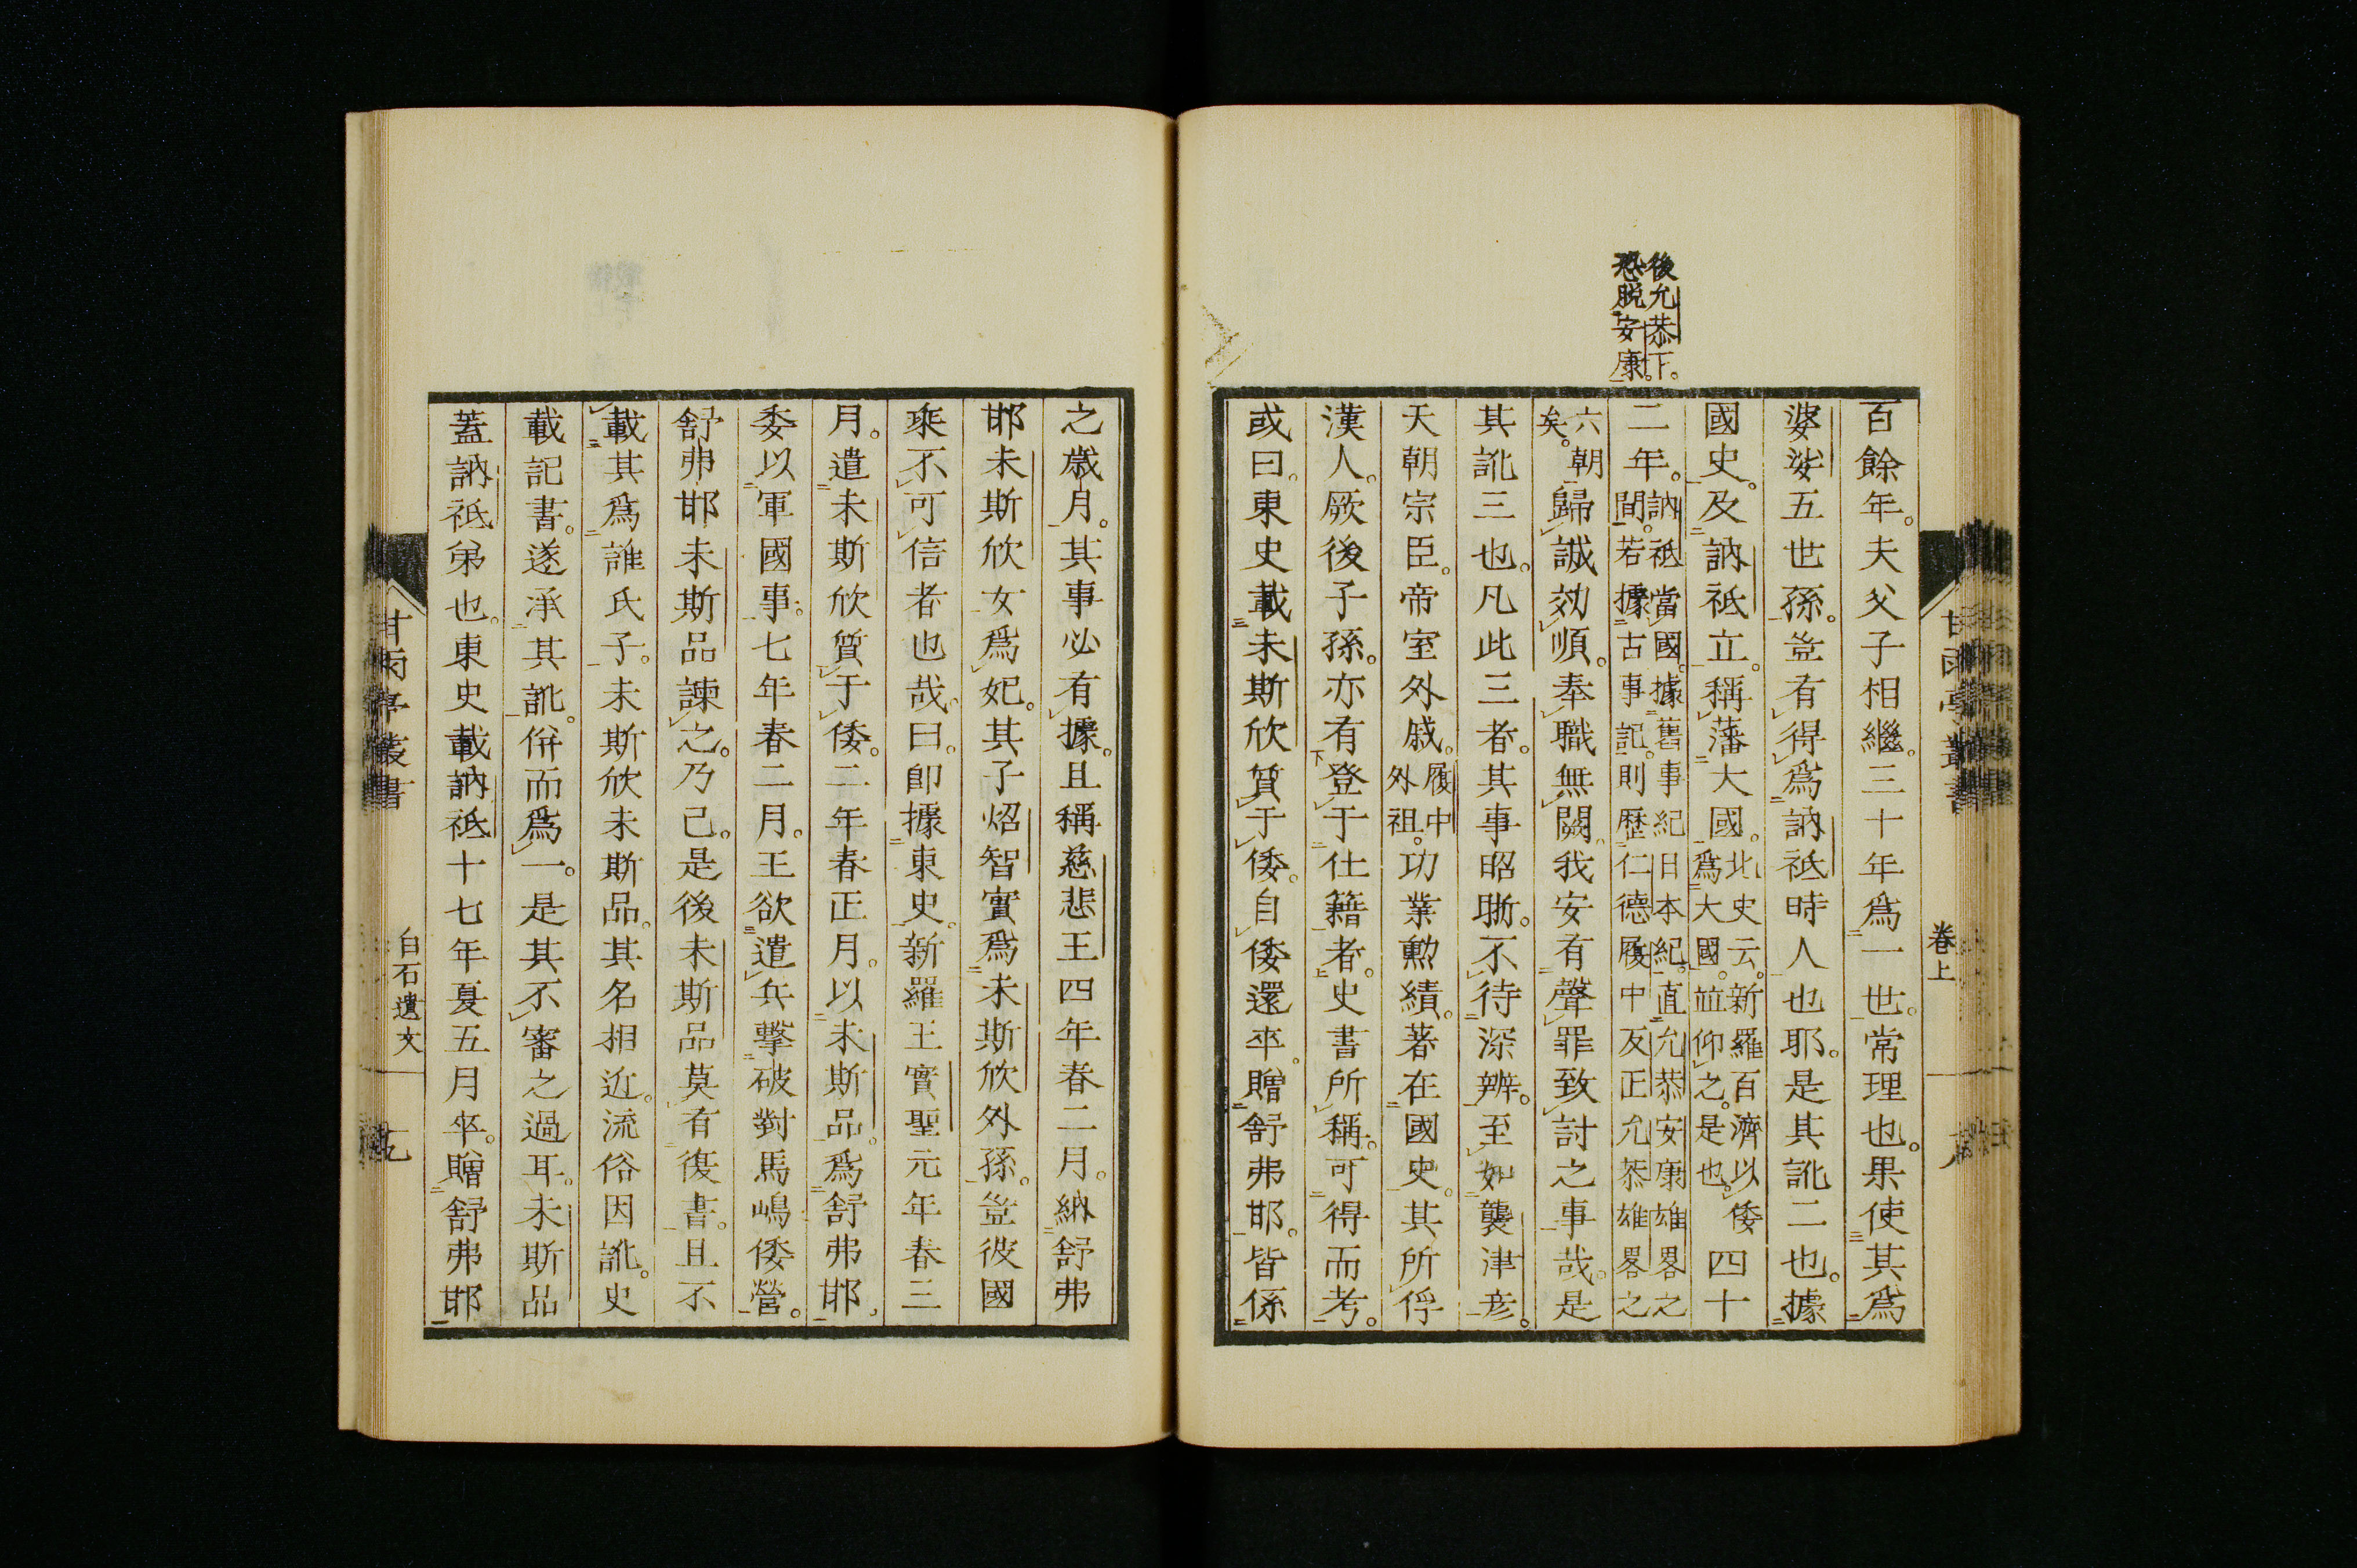 後允恭下。
恐脱安康。
百餘年。夫父子相繼。三十年爲一世。常理也。果使其爲
婆娑五世孫。豈有得爲訥祗時人也耶。是其訛二也。據
國史。及訥祗立。稱藩大國。北史云。新羅百濟以倭
爲大國。並仰之。是也。四十
二年。訥祗當國。據舊事紀日本紀。直允恭安康雄畧之
間。若據古事記。則歷仁德履中反正允恭雄畧之
六朝
矣。歸誠効順。奉職無闕。我安有聲罪致討之事哉。是
其訛三也。凡此三者。其事昭晰。不待深辨。至如襲津彦。
天朝宗臣。帝室外戚。履中
外祖。功業勲績。著在國史。其所俘
漢人。厥後子孫。亦有登于仕籍者。史書所稱。可得而考。
或曰。東史載未斯欣質于倭。自倭還卒。贈舒弗邯。皆係
卷上
之歳月。其事必有據。且稱慈悲王四年春二月。納舒弗
邯未斯欣女爲妃。其子炤智實爲未斯欣外孫。豈彼國
乘不可信者也哉。曰。卽據東史。新羅王實聖元年春三
月。遣未斯欣質于倭。二年春正月。以未斯品。爲舒弗邯。
委以軍國事。七年春二月。王欲遣兵擊破對馬嶋倭營。
舒弗邯未斯品諫之。乃已。是後未斯品莫有復書。且不
載其爲誰氏子。未斯欣未斯品。其名相近。流俗因訛。史
載記書。遂承其訛。併而爲一。是其不審之過耳。未斯品
蓋訥祗弟也。東史載訥祗十七年夏五月卒。贈舒弗邯
甘雨亭叢書
白石遺文